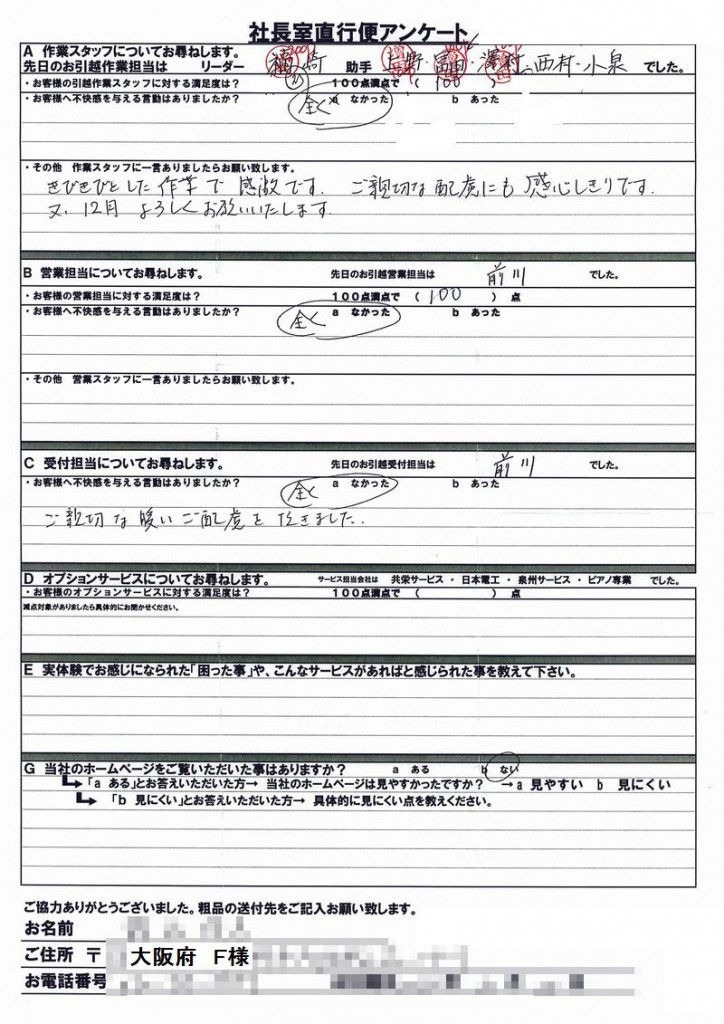 社長室直行便アンケート
A 作業スタッフについてお尋ねします。
先日のお引越作業担当は リーダー 福崎 助手 上野・冨田・澤村・西村・小泉 でした。
・お客様の引越作業スタッフに対する満足度は? 100点満点で ( 100 )
・お客様へ不快感を与える言動はありましたか? 全く a なかった b あった
・その他 作業スタッフに一言ありましたらお願い致します。
きびきびとした作業で感激です。 ご親切な配慮にも感心しきりです。
又、12月 よろしくお願いいたします。
B 営業担当についてお尋ねします。 先日のお引越営業担当は 前川 でした。
・お客様の営業担当に対する満足度は? 100点満点で ( 100 ) 点
・お客様へ不快感を与える言動はありましたか? 全く a なかった b あった
・その他 営業スタッフに一言ありましたらお願い致します。
C 受付担当についてお尋ねします。 先日のお引越受付担当は 前川 でした。
・お客様へ不快感を与える言動はありましたか? 全く a なかった b あった
ご親切な暖いご配慮を頂きました。
D オプションサービスについてお尋ねします。 サービス担当会社は 共栄サービス ・ 日本電工 ・ 泉州サービス ・ ピアノ専業 でした。
・お客様のオプションサービスに対する満足度は? 100点満点で ( ) 点
減点対象がありましたら具体的にお聞かせください。
E 実体験でお感じになられた「困った事」や、こんなサービスがあればと感じられた事を教えて下さい。
G 当社のホームページをご覧いただいた事はありますか? a ある b ない
「a ある」とお答えいただいた方→ 当社のホームページは見やすかったですか? →a 見やすい b 見にくい
「b 見にくい」とお答えいただいた方→ 具体的に見にくい点を教えください。
ご協力ありがとうございました。粗品の送付先をご記入お願い致します。
お名前
ご住所 〒 大阪府 F様
お電話番号